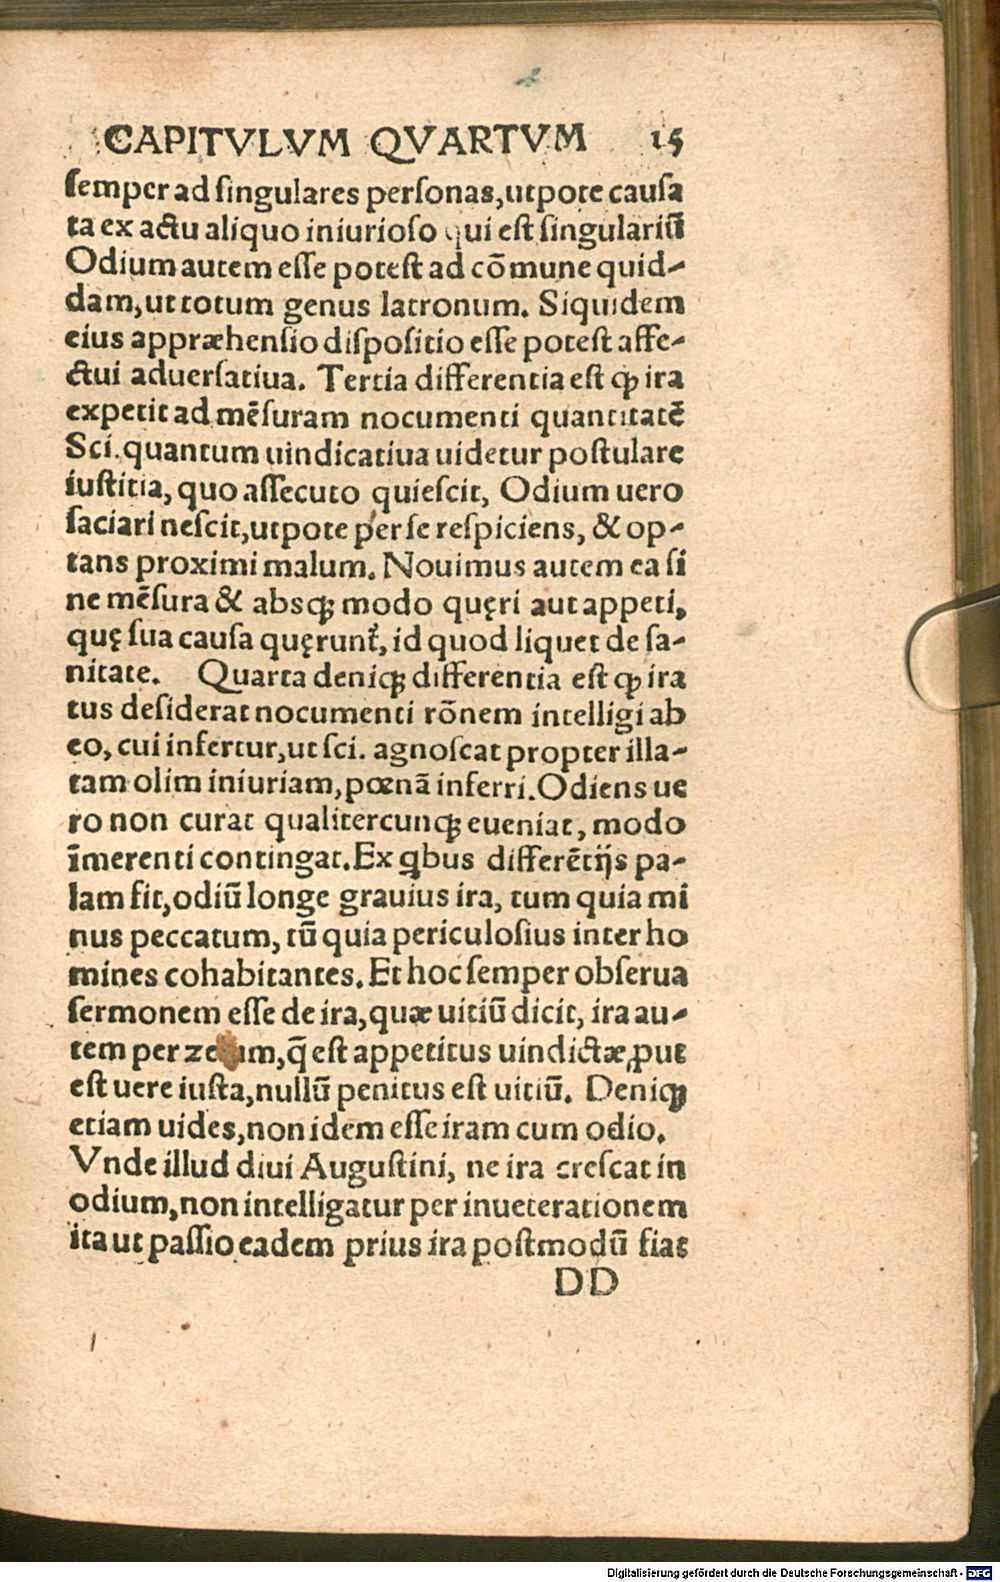 CAPITVLVM QVARTVM 15
semper ad singulares personas, utpote causa
ta ex actu aliquo iniurioso qui est singulariũ
Odium autem esse potest ad cõmune quid-
dam, ut totum genus latronum. Siquidem
eius appræhensio dispositio esse potest affe-
ctui aduersatiua. Tertia differentia est ꝙ ira
expetit ad mẽsuram nocumenti quantitatẽ
Sci. quantum uindicatiua uidetur postulare
iustitia, quo assecuto quiescit, Odium uero
saciari nescit, utpote per se respiciens, & op-
tans proximi malum. Nouimus autem ea si
ne mẽsura & absꝗ modo quęri aut appeti,
quę sua causa quęrunt᷑, id quod liquet de sa-
nitate. Quarta deniꝗ differentia est ꝙ ira
tus desiderat nocumenti rõnem intelligi ab
eo, cui infertur, ut sci. agnoscat propter illa-
tam olim iniuriam, pœnã inferri. Odiens ue
ro non curat qualitercunꝗ eueniat, modo
ĩmerenti contingat. Ex ꝗbus differẽtijs pa-
lam fit, odiũ longe grauius ira, tum quia mi
nus peccatum, tũ quia periculosius inter ho
mines cohabitantes. Et hoc semper obserua
sermonem esse de ira, quæ uitiũ dicit, ira au-
tem per zelum, q̃ est appetitus uindictæ, ꝓut
est uere iusta, nullũ penitus est uitiũ. Deniꝗ
etiam uides, non idem esse iram cum odio.
Vnde illud diui Augustini, ne ira crescat in
odium, non intelligatur per inueterationem
ita ut passio eadem prius ira postmodũ fiat
DD
Digitalisierung gefördert durch die Deutsche Forschungsgemeinschaft - DFG